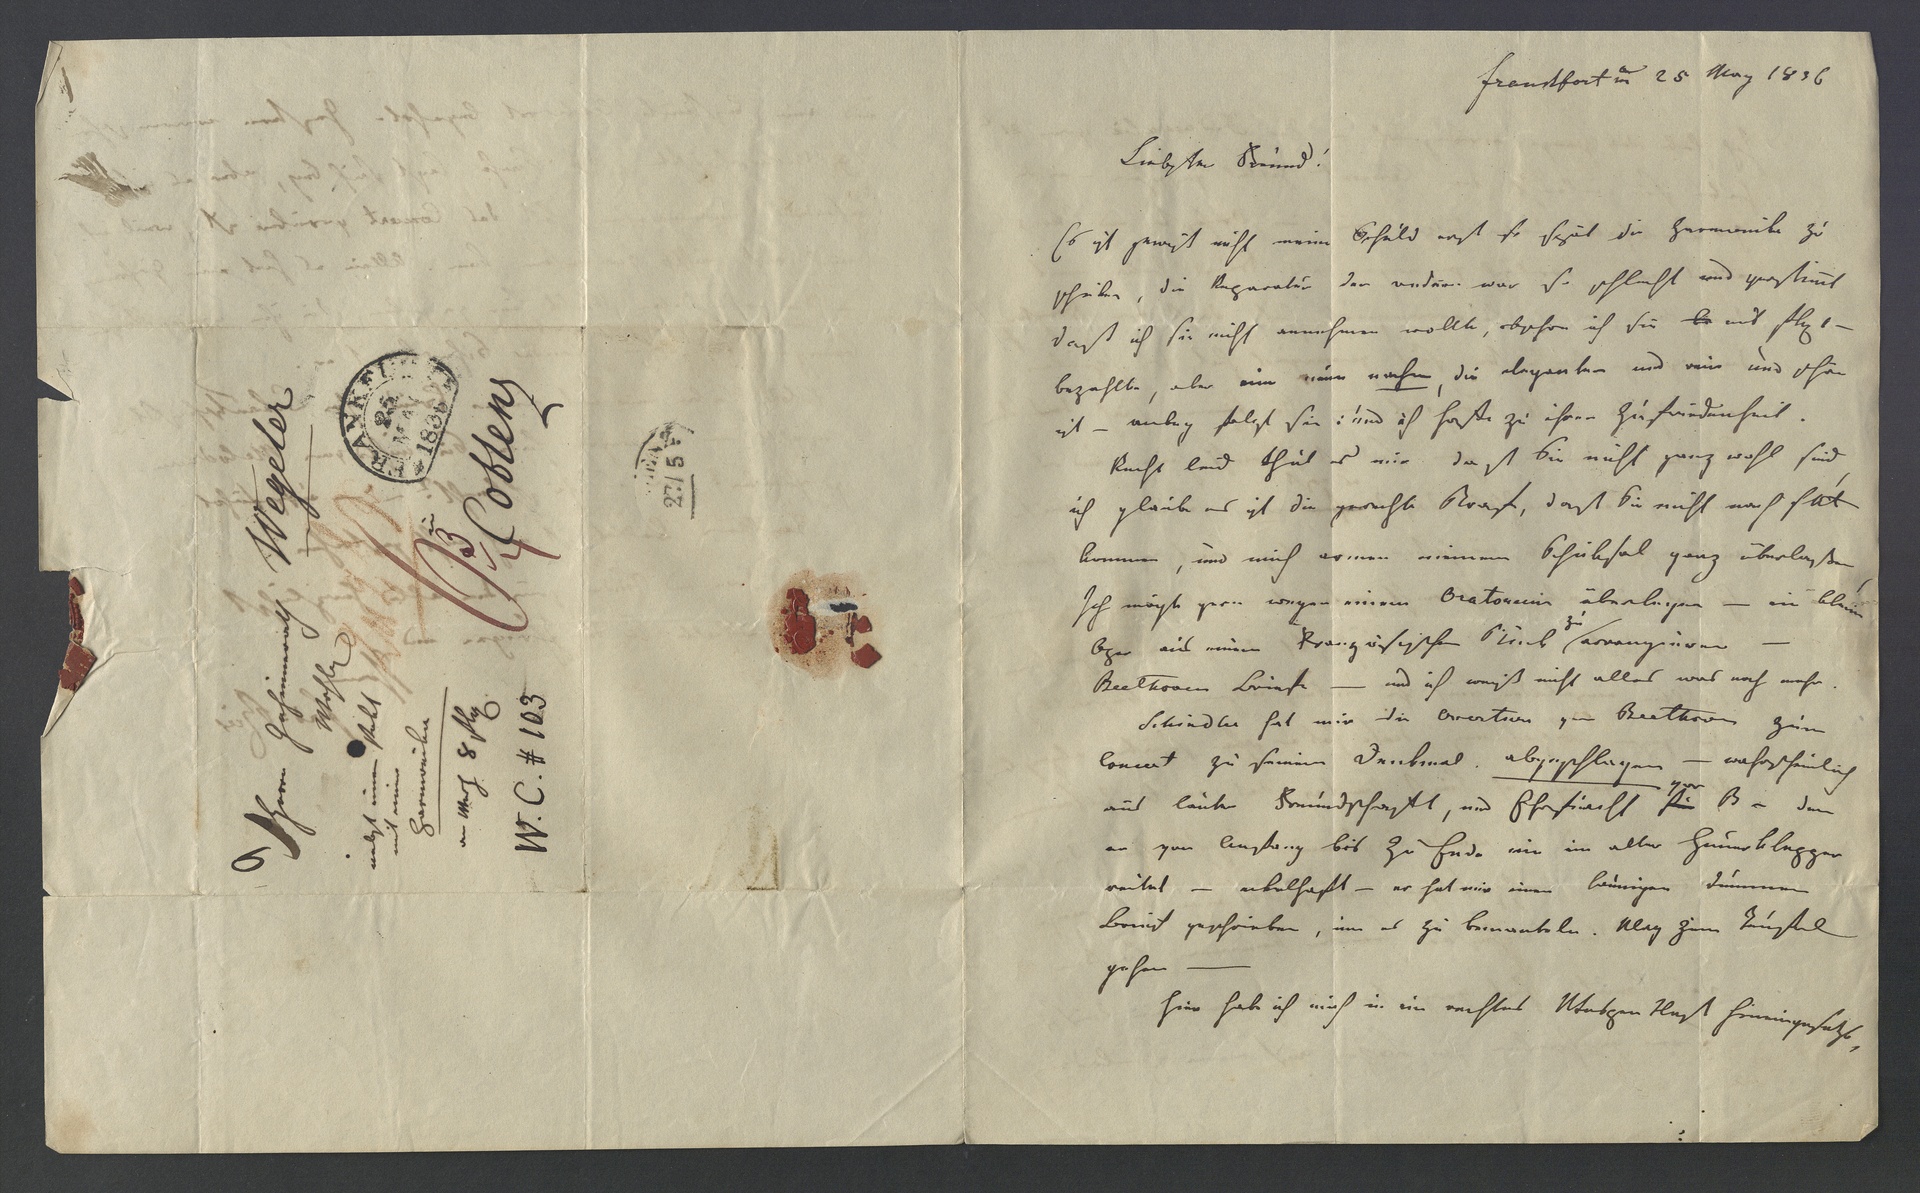 Herrn Geheimrath Wegeler
Wohlg
in
Coblenz
nebst einem
mit einer
Harmonika
W. C. # 103
FRANKFURT
25
MAI
1836
27/5
Frankfort a/m 25 May 1836
Liebster Freund!
Es ist gewiß nicht meine Schuld erst so spät die Harmonika zu
schicken, die Reparatur der andern war so schlecht und verstimmt
daß ich sie nicht annehmen wollte, obschon ich sie mit
bezahlte, aber eine neue nahm, die eleganter und rein und schön
ist – anbey folgt sie: und ich hoffe zu ihrer Zufriedenheit.
Recht leid thut es mir daß Sie nicht ganz wohl sind
ich glaube es ist die gerechte Straf, daß Sie nicht nach
kommen, und mich armen meinem Schicksal ganz überlaßen
Ich mögte gern wegen einem Oratorium überlegen – ein klein
Oper aus einem Französischen Stück zu arrangieren –
Beethoven Briefe – und ich weiß nicht alles was noch mehr.
Schindler hat mir die Overturen von Beethoven zum
Concert zu seinem Denkmal. abgeschlagen – wahrscheinlich
aus lauter Freundschaft, und Ehrfurcht vor B – den
er von Anfang bis zu Ende wie ein alter
reitet – ekelhaft – er hat mir einen dummen
Brief geschrieben, um es zu bemanteln. Mag zum Teufel
gehen —
hier hab ich mich in ein rechtes Wespen Nest hineingesetzt,